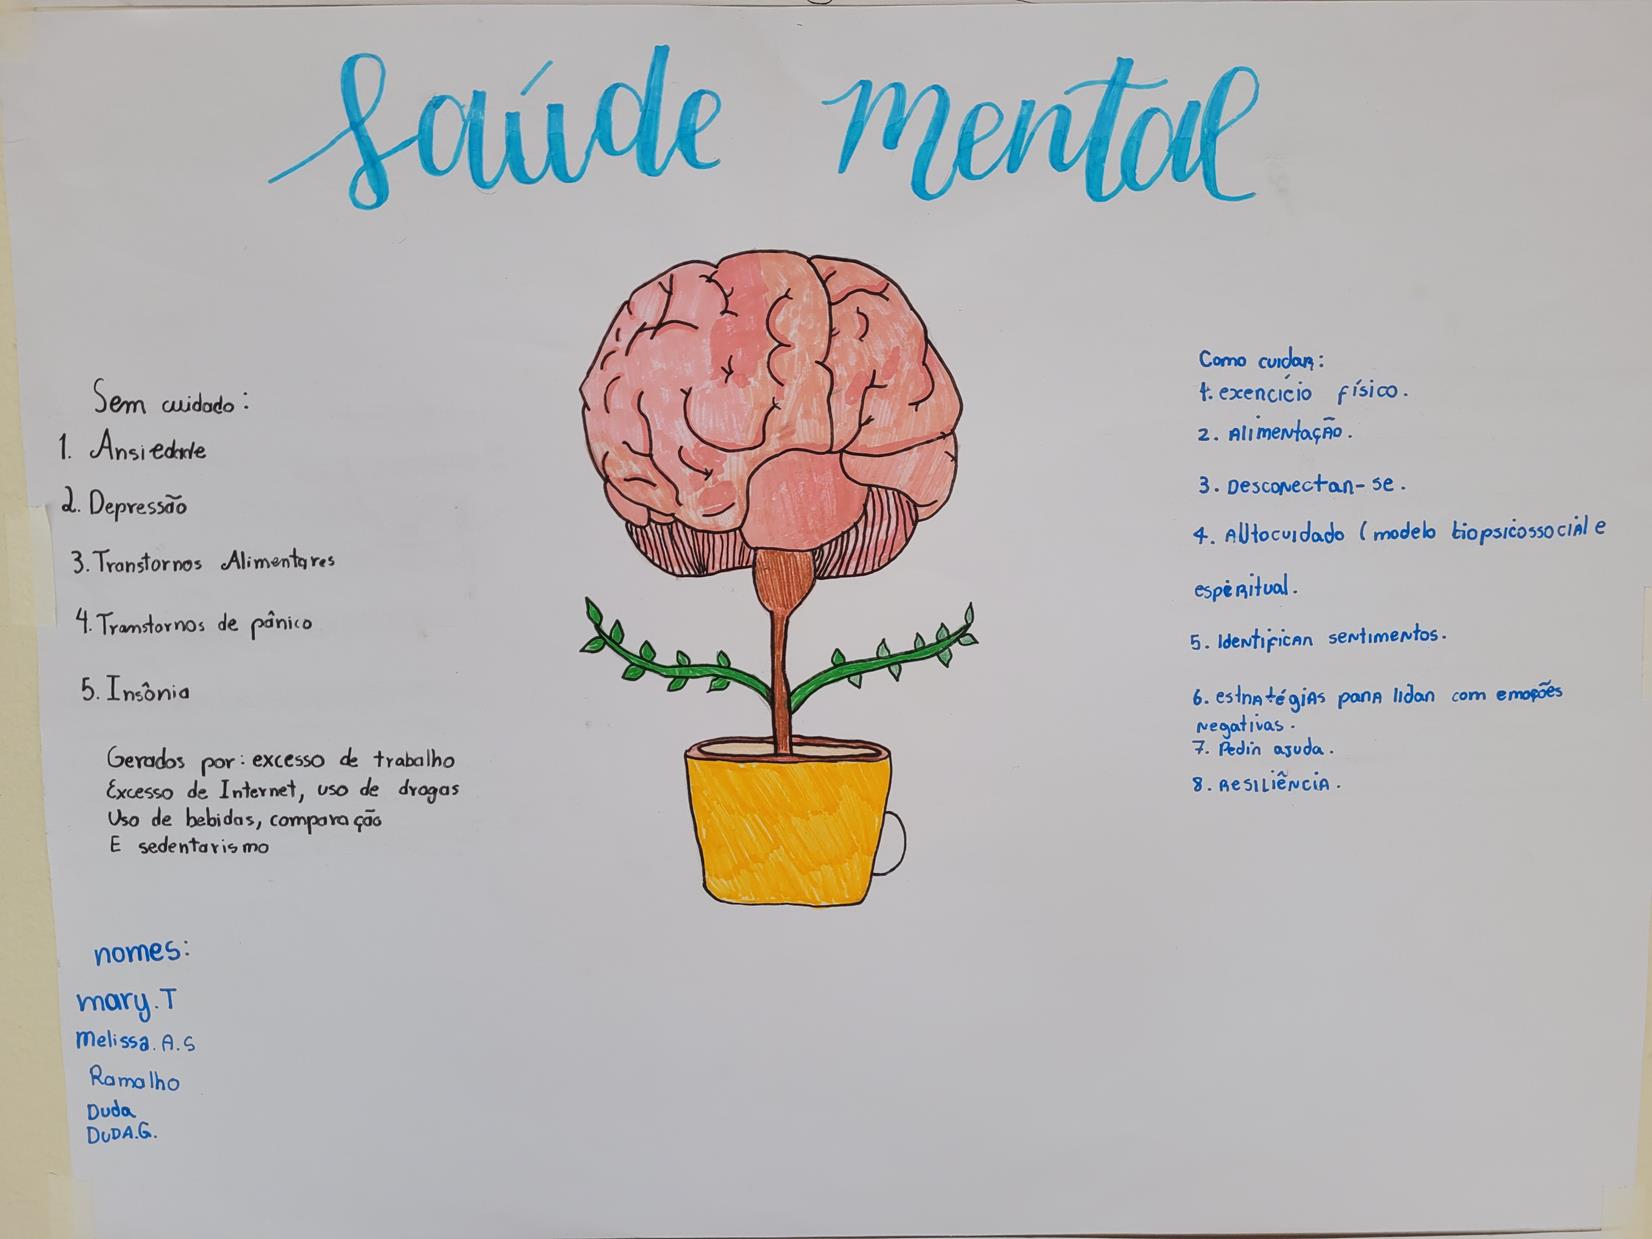 Saúde mental
Sem cuidado:
1. Ansiedade
2. Depressão
3. Transtornos Alimentares
4. Transtornos de pânico
5. Insônia
Gerados por: excesso de trabalho
Excesso de Internet, uso de drogas
Uso de bebidas, comparação
E sedentarismo
nomes:
mary.T
Melissa.A.S
Ramalho
Duda
DUDA.G.
Como cuidar:
1. exercício físico.
2. Alimentação.
3. Desconectar-se.
4. Autocuidado (modelo biopsicossocial e
espiritual.
5. Identificar sentimentos.
6. estratégias para lidar com emoções
negativas.
7. Pedir ajuda.
8. Resiliência.